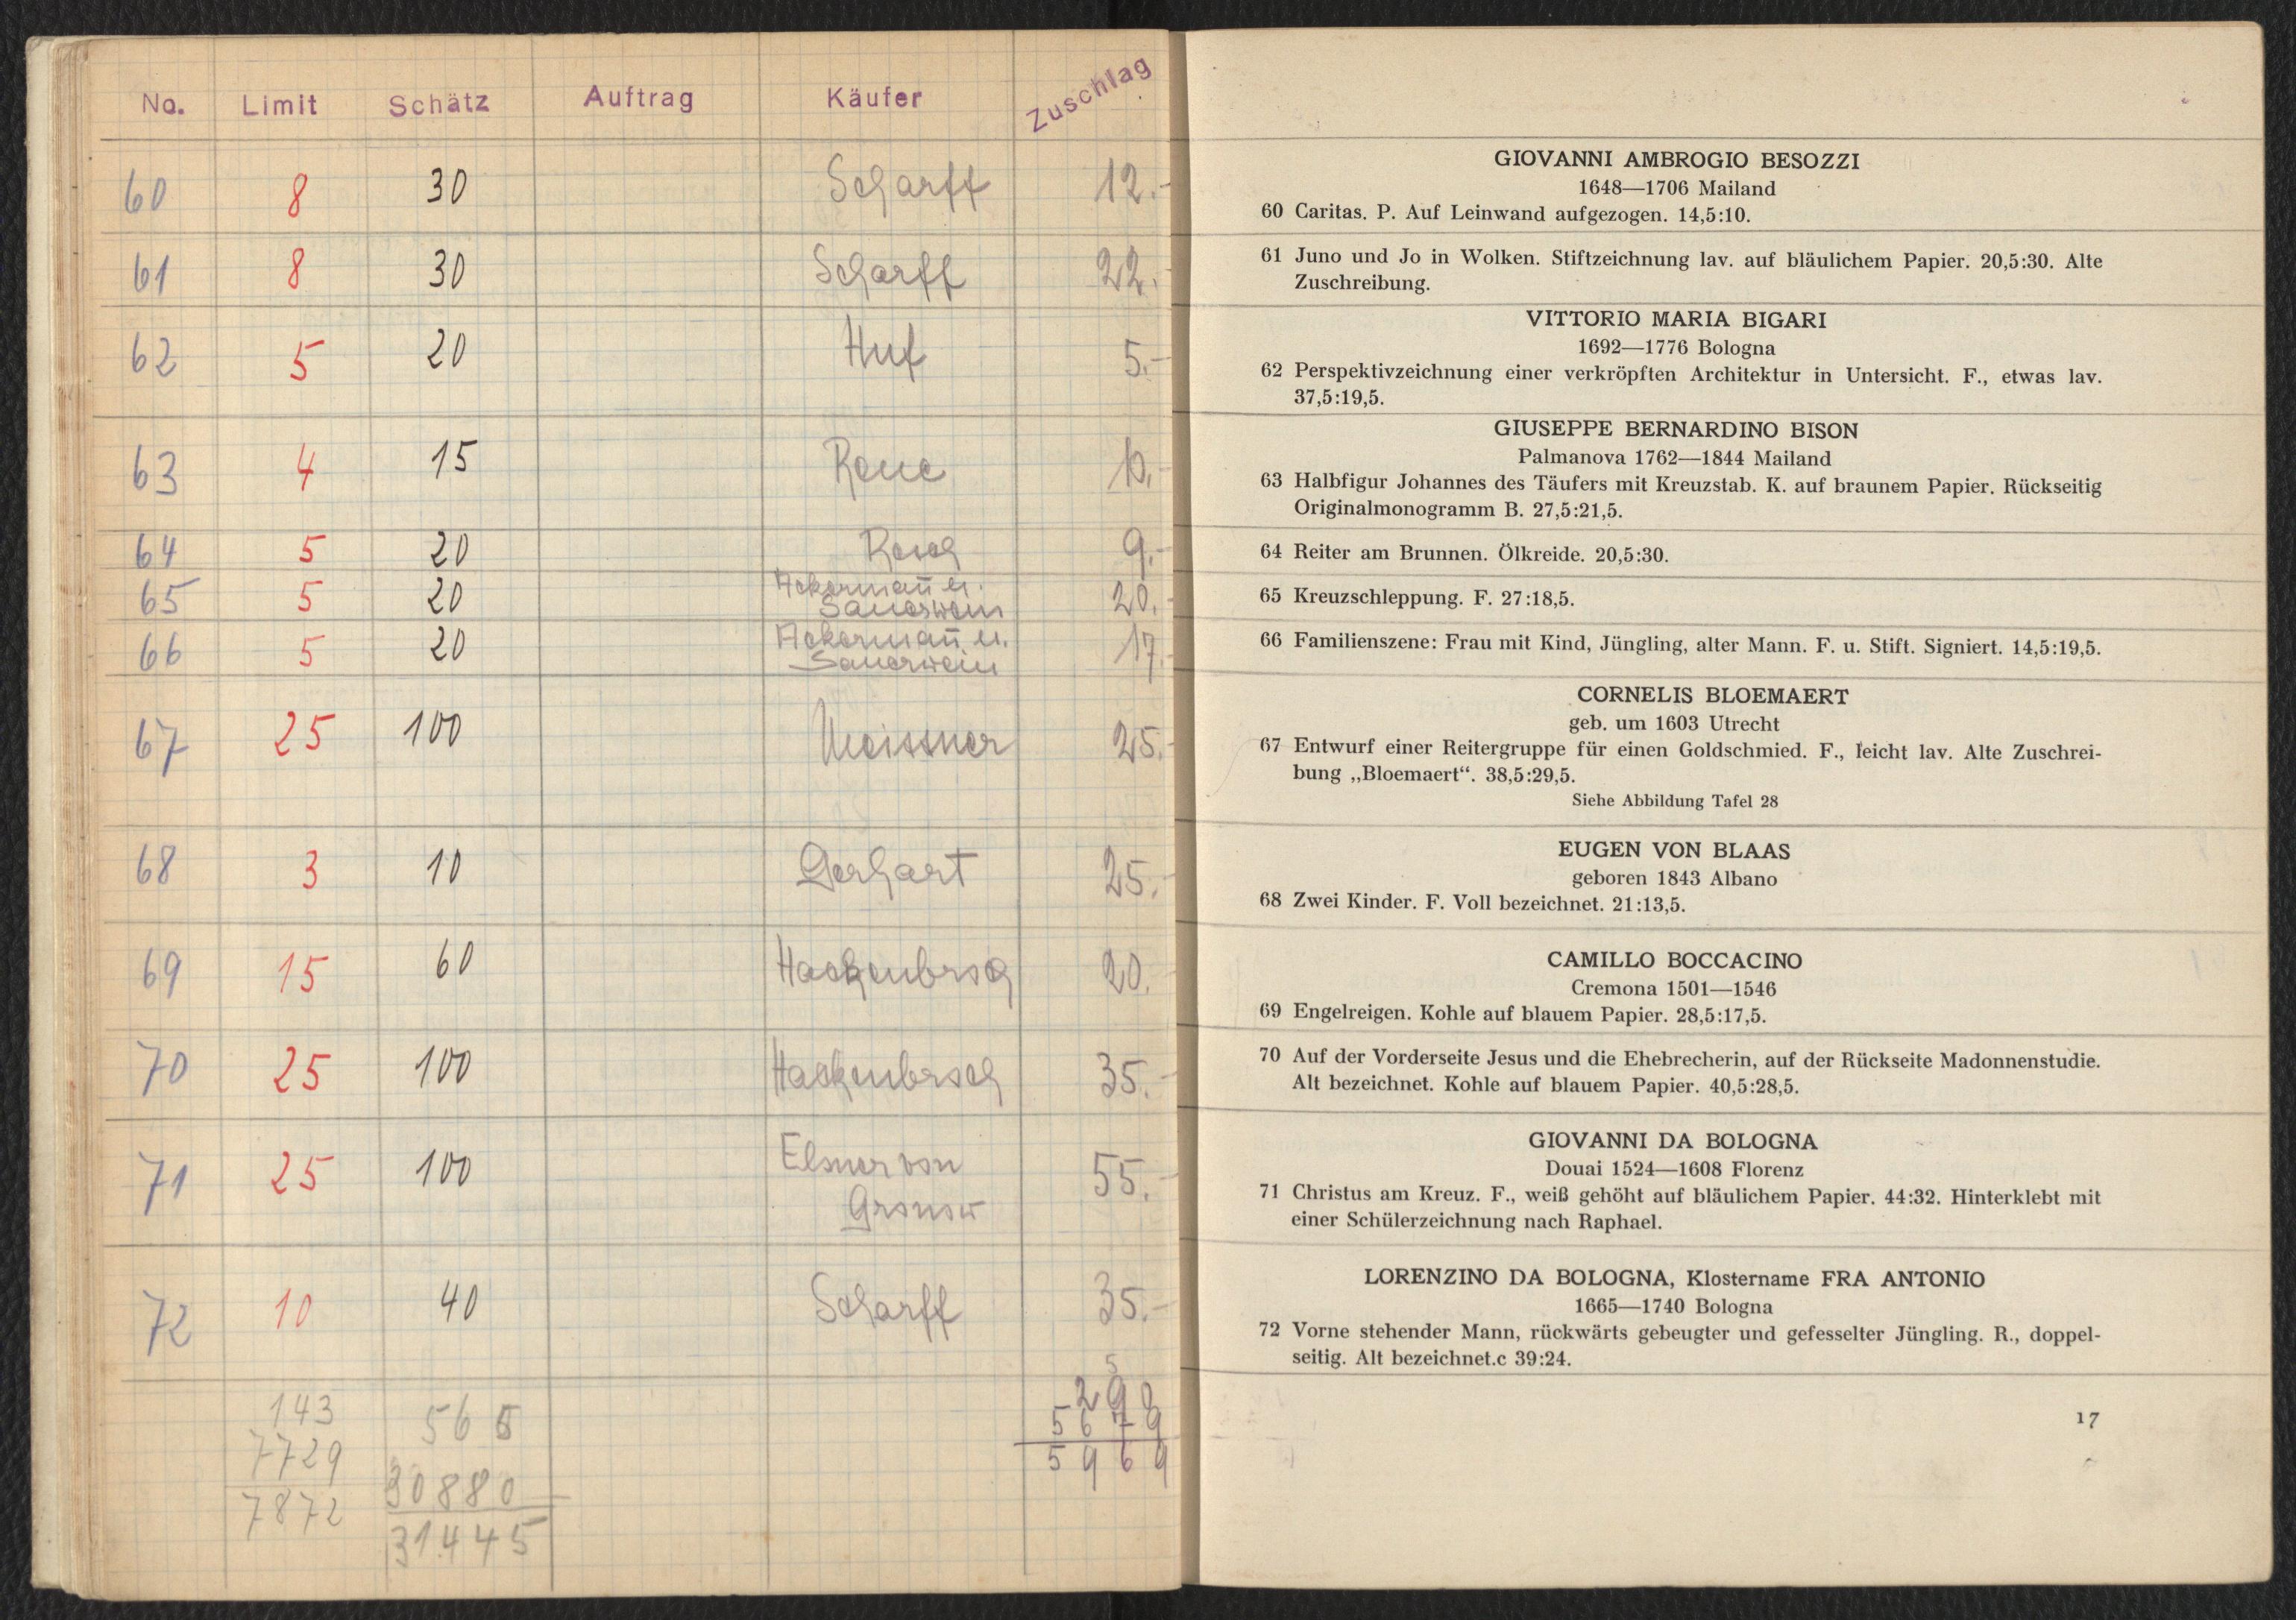 No. Limit Schätz Auftrag Käufer Zuschlag
60 8 30 Scharff 12.-
61 8 30 Scharff 22.-
62 5 20 Huf 5.-
63 4 15 10.-
64 5 20 9.-
65 5 20 Ackermann̄ u. Sauerwein 20.-
66 5 20 Ackermann̄ u. Sauerwein 17.-
67 25 100 Meissner 25.-
68 3 10 Gerhart 25.-
69 15 60 Hackenbroch 20.-
70 25 100 Hackenbroch 35.-
71 25 100 Elsner von Gronow 55.-
72 10 40 Scharff 35.-
143 565
7729 30880 5679
7872 31445 5969
GIOVANNI AMBROGIO BESOZZI
1648—1706 Mailand
60 Caritas. P. Auf Leinwand aufgezogen. 14,5:10.
61 Juno und Jo in Wolken. Stiftzeichnung lav. auf bläulichem Papier. 20,5:30. Alte
Zuschreibung.
VITTORIO MARIA BIGARI
1692—1776 Bologna
62 Perspektivzeichnung einer verkröpften Architektur in Untersicht. F., etwas lav.
37,5:19,5.
GIUSEPPE BERNARDINO BISON
Palmanova 1762—1844 Mailand
63 Halbfigur Johannes des Täufers mit Kreuzstab. K. auf braunem Papier. Rückseitig
Originalmonogramm B. 27,5:21,5.
64 Reiter am Brunnen. Ölkreide. 20,5:30.
65 Kreuzschleppung. F. 27:18,5.
66 Familienszene: Frau mit Kind, Jüngling, alter Mann. F. u. Stift. Signiert. 14,5:19,5.
CORNELIS BLOEMAERT
geb. um 1603 Utrecht
67 Entwurf einer Reitergruppe für einen Goldschmied. F., leicht lav. Alte Zuschrei-
bung „Bloemaert“. 38,5:29,5.
Siehe Abbildung Tafel 28
EUGEN VON BLAAS
geboren 1843 Albano
68 Zwei Kinder. F. Voll bezeichnet. 21:13,5.
CAMILLO BOCCACINO
Cremona 1501—1546
69 Engelreigen. Kohle auf blauem Papier. 28,5:17,5.
70 Auf der Vorderseite Jesus und die Ehebrecherin, auf der Rückseite Madonnenstudie.
Alt bezeichnet. Kohle auf blauem Papier. 40,5:28,5.
GIOVANNI DA BOLOGNA
Douai 1524—1608 Florenz
71 Christus am Kreuz. F., weiß gehöht auf bläulichem Papier. 44:32. Hinterklebt mit
einer Schülerzeichnung nach Raphael.
LORENZINO DA BOLOGNA, Klostername FRA ANTONIO
1665—1740 Bologna
72 Vorne stehender Mann, rückwärts gebeugter und gefesselter Jüngling. R., doppel-
seitig. Alt bezeichnet.c 39:24.
17